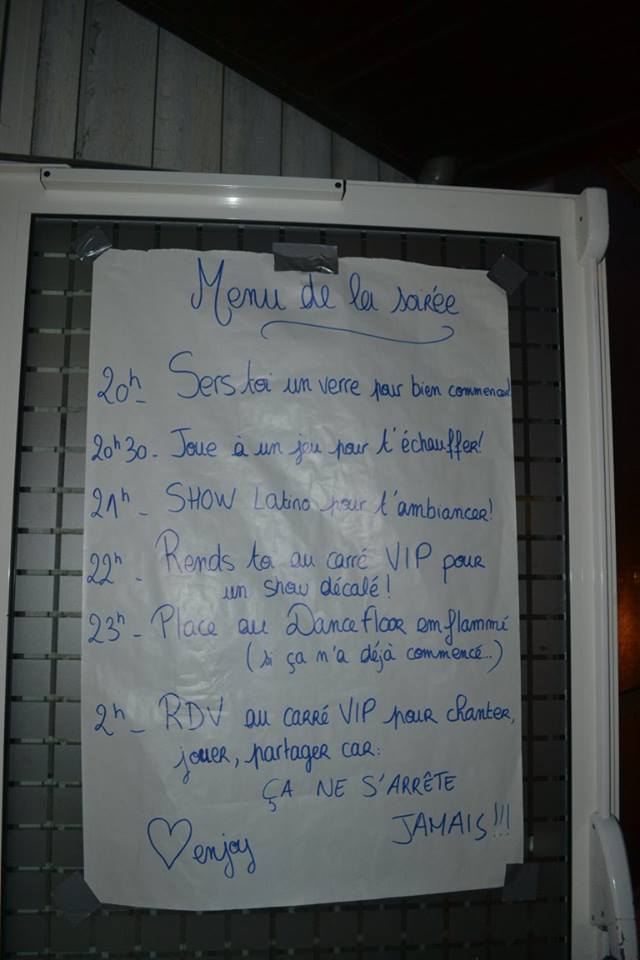 Menu de la soirée
20h_ Sers toi un verre pour bien commencer!
20h30_ Joue à un jeu pour t'échauffer!
21h_ SHOW Latino pour t'ambiancer!
22h_ Rends toi au carré VIP pour
un show décalé!
23h_ Place au Dancefloor enflammé
(si ça n'a déjà commencé...)
2h_ RDV au carré VIP pour chanter,
jouer, partager car:
ÇA NE S'ARRÊTE
JAMAIS!!!
♡ enjoy